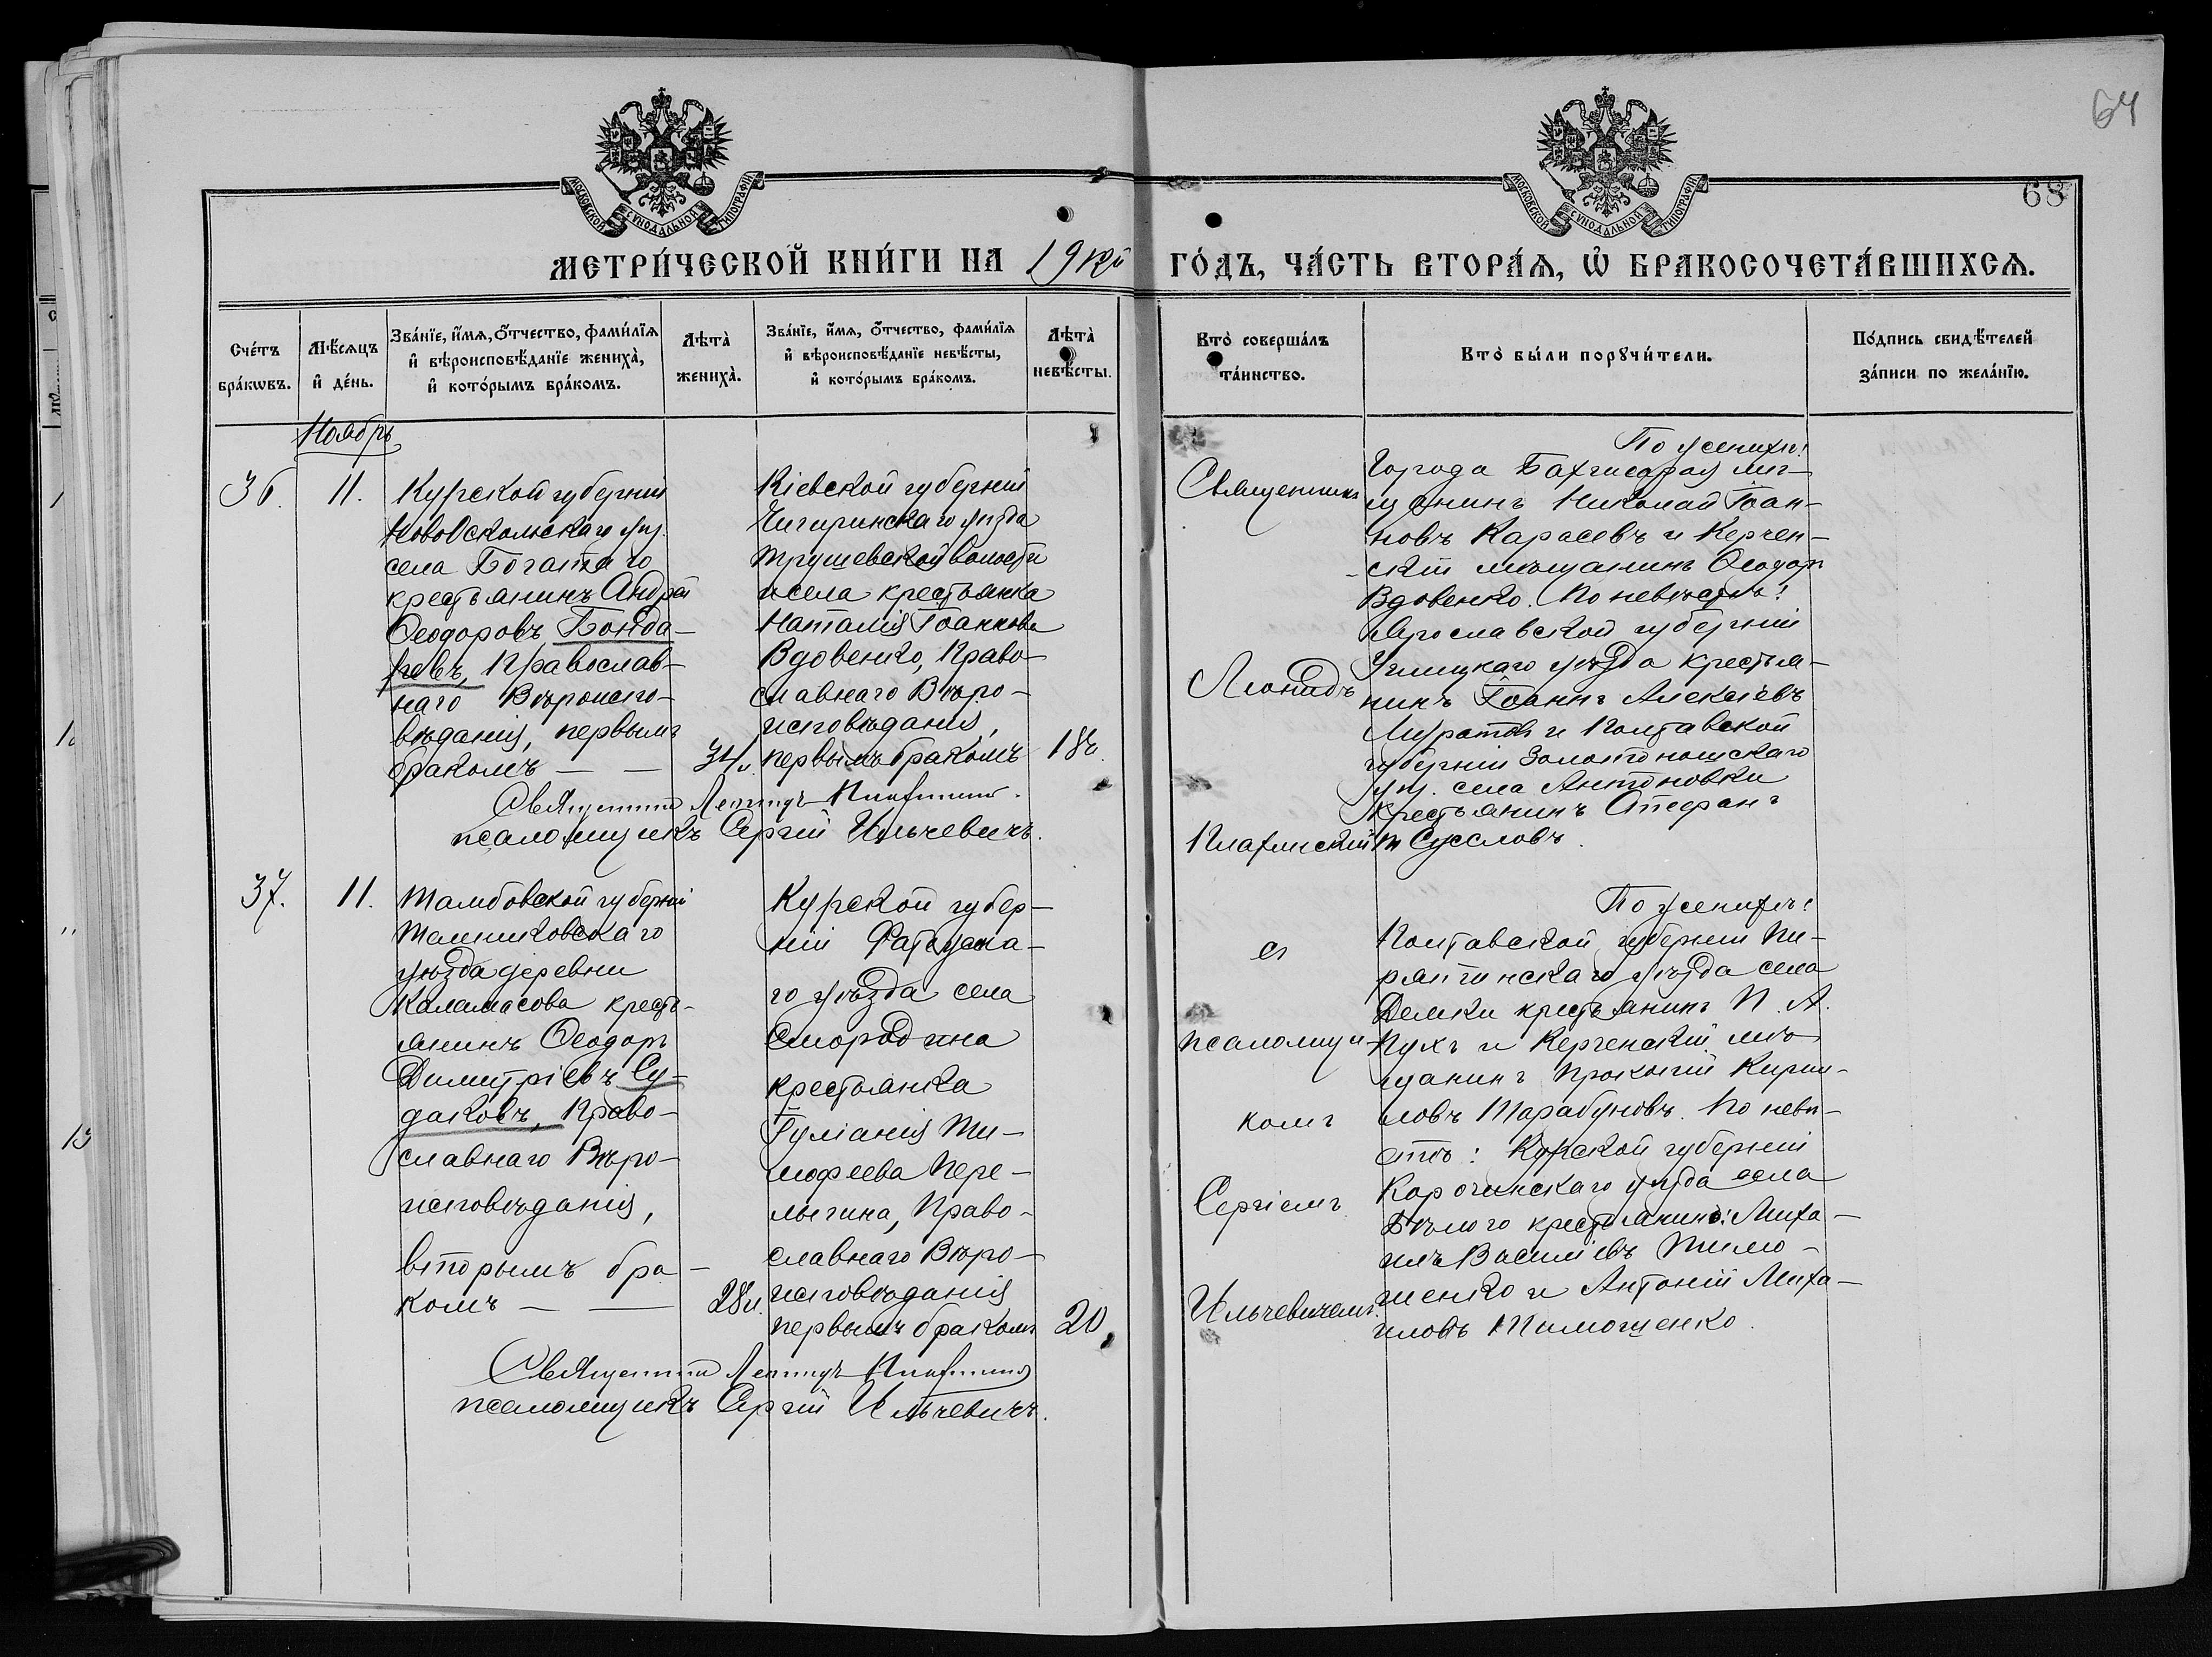 64
68
МОСКОВСКОЙ СѴНОДАЛЬНОЙ ТИПОГРАФІИ.
МОСКОВСКОЙ СѴНОДАЛЬНОЙ ТИПОГРАФІИ.
МЕТРИ́ЧЕСКОЙ КНИ́ГИ НА 19
ГО́ДЪ, ЧА́СТЬ ВТОРА́Ѧ, Ѽ БРАКОСОЧЕТА́ВШИХСѦ.
Сче́тъ бра́кѡвъ.
Мѣ́сѧцъ и҆ де́нь.
Зва́нїе, и҆́мѧ, ѻ҆́тчество, фами́лїѧ и҆ вѣроисповѣ́данїе жениха̀, и҆ кото́рымъ бра́комъ.
Лѣта̀ жениха̀.
Зва́нїе, и҆́мѧ, ѻ҆́тчество, фами́лїѧ и҆ вѣроисповѣ́данїе невѣ́сты, и҆ кото́рымъ бра́комъ.
Лѣта̀ невѣ́сты.
Кто̀ соверша́лъ та́инство.
Кто̀ бы́ли порꙋчи́тели.
По́дпись свидѣ́телей за́писи по жела́нїю.
Ноябрь
36.
11.
Курской губерніи
Новооскольскаго уѣз.
села Богатаго
крестьянинъ Андрей
Ѳеодоровъ Бонда-
ревъ, Православ-
наго Вѣроиспо-
вѣданія, первымъ
бракомъ — —
Кіевской губерніи
Чигиринскаго уѣзда
Трушевской волости
и села крестьянка
Наталія Іоаннова
Вдовенко, Право-
славнаго Вѣро-
исповѣданія,
первымъ бракомъ
18
Священникъ Леонидъ
псаломщикъ Сергій Ильчевичъ.
Священникъ
Леонидъ
По женихѣ:
Города Бахчисарая мѣ-
щанинъ Николай Іоан-
новъ Карасевъ и Керчен-
скій мѣщанинъ Ѳеодоръ
Вдовенко. По невѣстѣ:
Ярославской губерніи
Углицкаго уѣзда крестья-
нинъ Іоаннъ Алексіевъ
Муратовъ и Полтавской
губерніи Золотоношскаго
уѣз. села Антоновки
крестьянинъ Стефанъ
Сусловъ.
37.
11.
Тамбовской губерніи
Темниковскаго
уѣзда деревни
Каламасова кресть-
янинъ Ѳеодоръ
Димитріевъ Су-
даковъ, Право-
славнаго Вѣро-
исповѣданія,
вторымъ бра-
комъ — —
28 л.
Курской губер-
ніи Фатежска-
го уѣзда села
Смородина
крестьянка
Іуліанія Ти-
мофеева Пере-
лыгина, Право-
славнаго Вѣро-
исповѣданія
первымъ бракомъ
20
Священникъ Леонидъ
псаломщикъ Сергій Ильчевичъ.
съ
псаломщи-
комъ
Сергіемъ
Ильчевичемъ.
По женихѣ:
Полтавской губерніи Пи-
рятинскаго уѣзда села
Демки крестьянинъ П. А.
Пухъ и Керченскій мѣ-
щанинъ Прокопій Кирил-
ловъ Тарабуновъ. По невѣ-
стѣ: Курской губерніи
Корочинскаго уѣзда села
Бѣлого крестьянинъ: Миха-
илъ Василіевъ Тимо-
шенко и Антоній Миха-
иловъ Тимошенко.